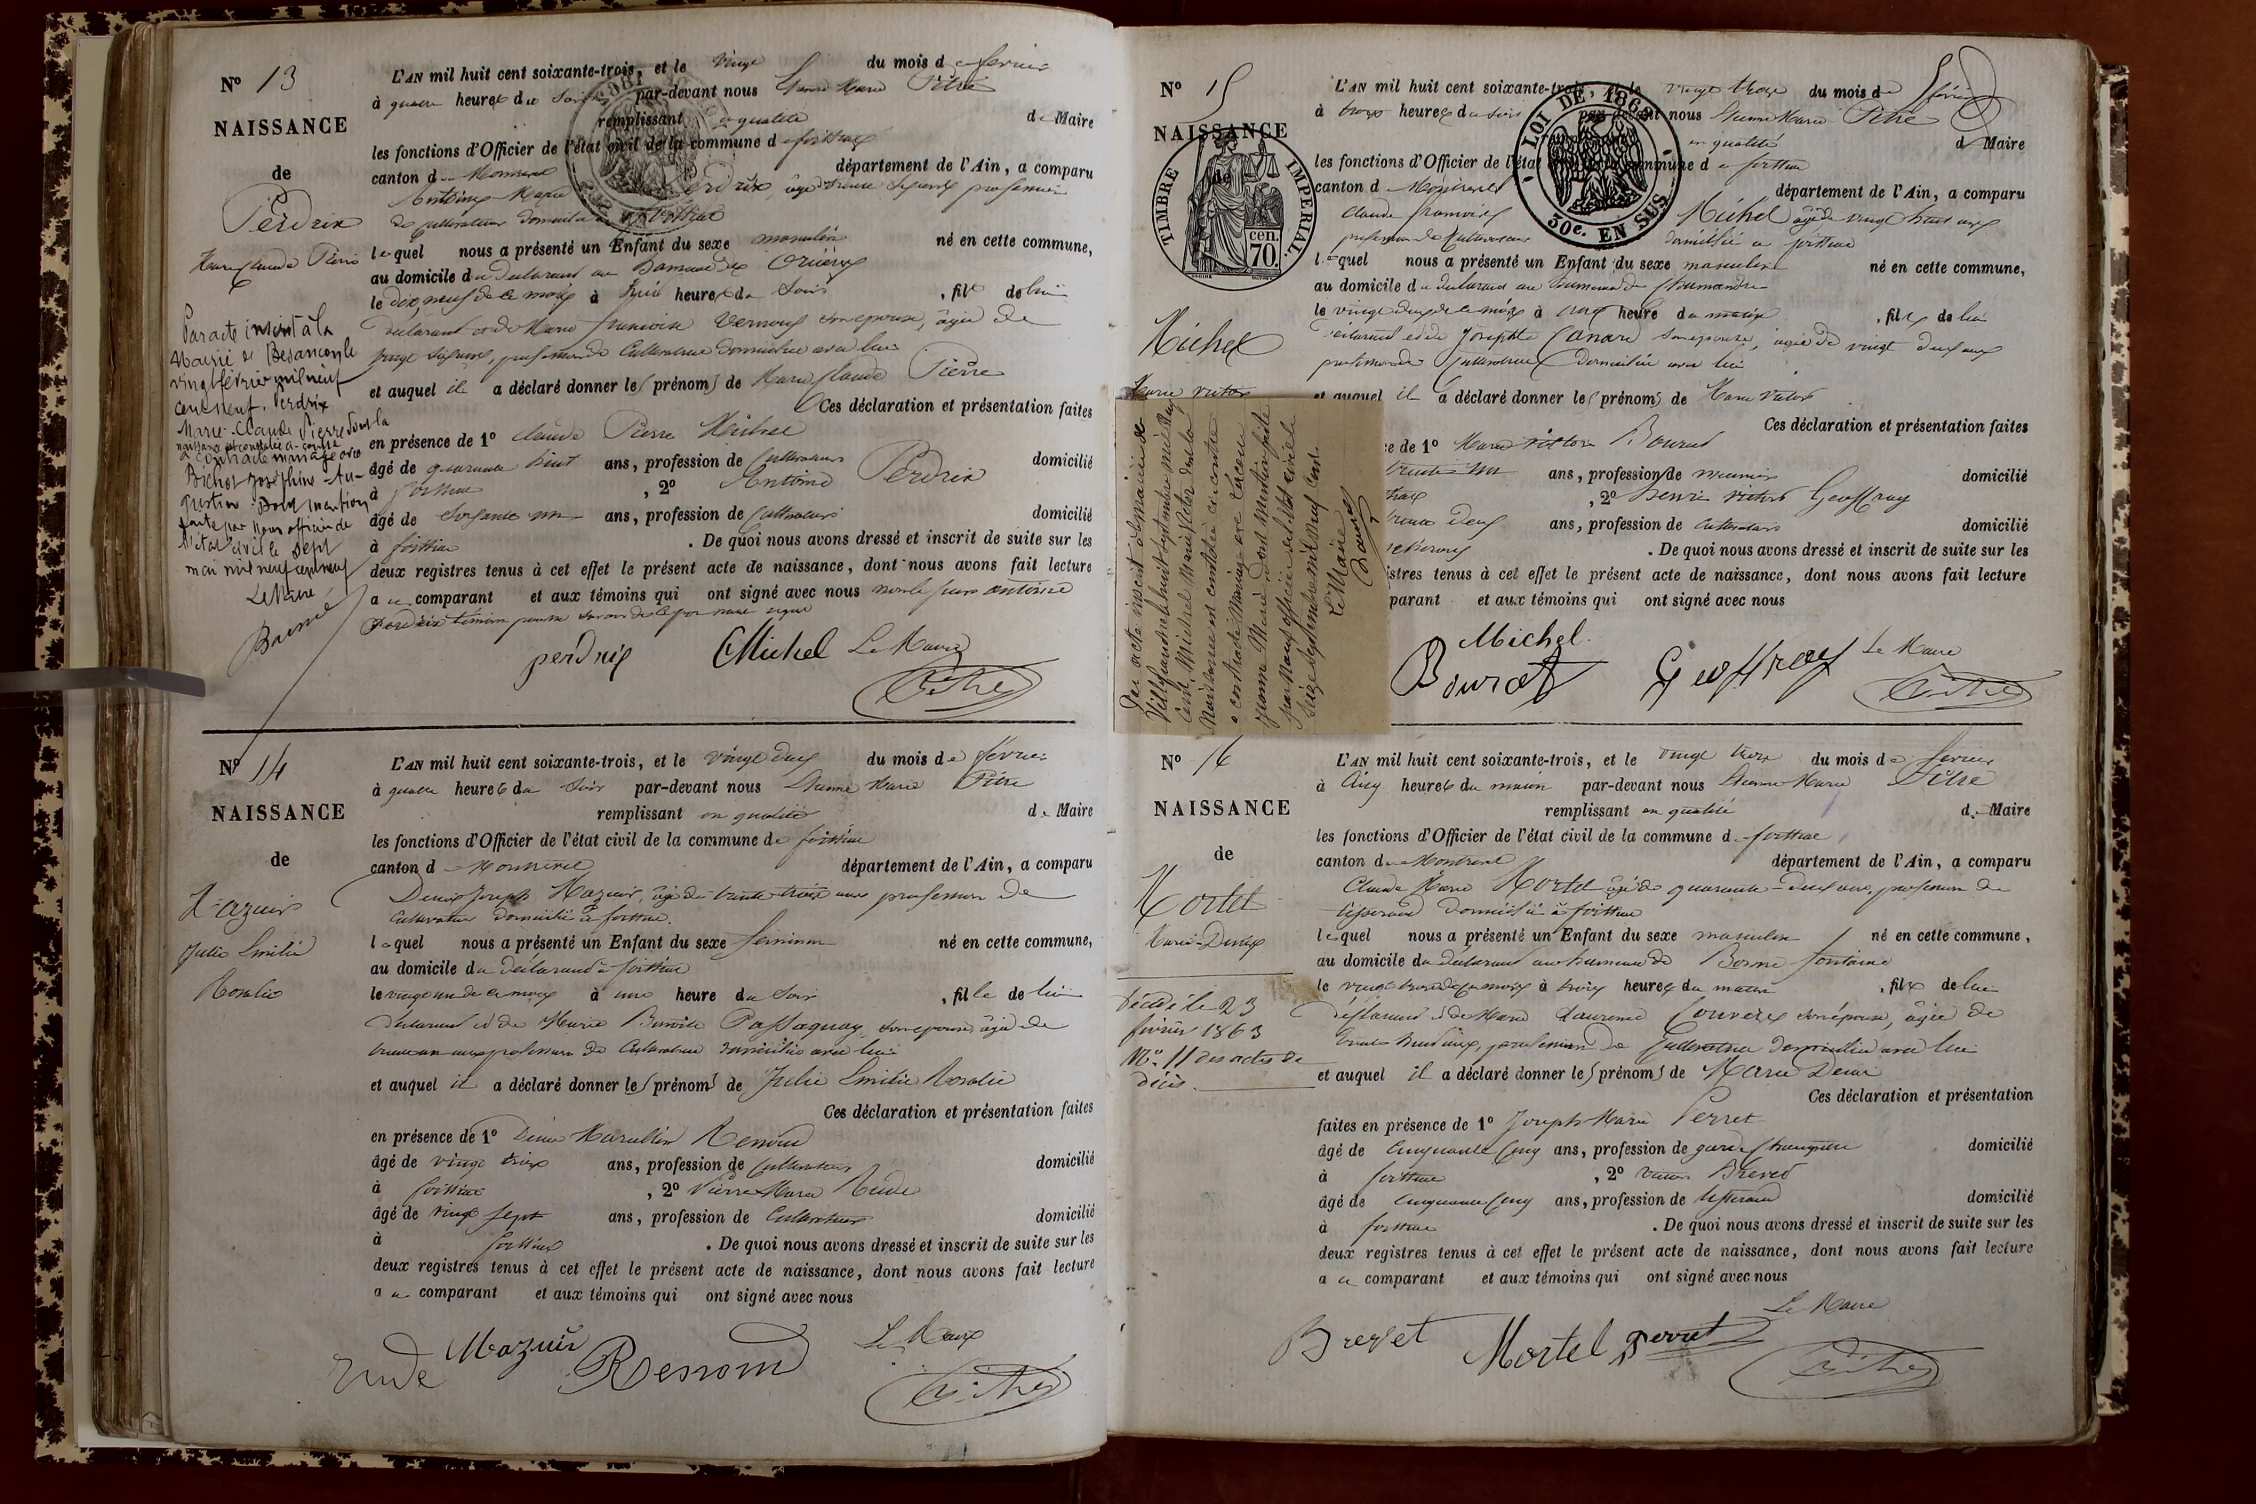 N° 13
NAISSANCE
de
Perdrix
Marie Claude Pierre
Par acte inscrit à la
Mairie de Besançon le
vingt février mil neuf
cent neuf, Perdrix
Marie-Claude Pierre dont la
naissance est constatée ci-contre
a contracté mariage avec
Bichot Joséphine-Au-
gustine. Dont mention
faite par nous officier de
l'état civil le sept
mai mil neuf cent neuf
Le Maire
L'AN mil huit cent soixante-trois, et le vingt du mois de février
à quatre heures du soir par-devant nous Etienne Marie Pitre
remplissant en qualité de Maire
les fonctions d'Officier de l'état civil de la commune de
canton de Montrevel département de l'Ain, a comparu
Antoine Marie Perdrix, âgé de trente ans profession
de cultivateur domicilié à
lequel nous a présenté un Enfant du sexe masculin né en cette commune,
au domicile du déclarant au hameau des
le dix neuf de ce mois à huit heures du soir, fils de lui
déclarant et de Marie Françoise son épouse, âgée de
vingt profession de Cultivatrice domiciliée avec lui
et auquel il a déclaré donner les prénoms de Marie Claude Pierre
Ces déclaration et présentation faites
en présence de 1° Claude Pierre Michel
âgé de quarante huit ans, profession de Cultivateur domicilié
à , 2° Antoine Perdrix
âgé de soixante un ans, profession de Cultivateur domicilié
à . De quoi nous avons dressé et inscrit de suite sur les
deux registres tenus à cet effet le présent acte de naissance, dont nous avons fait lecture
au comparant et aux témoins qui ont signé avec nous Antoine
Perdrix témoin pour ne savoir de ce par nous requis
perdrix CMichel Le Maire
Pitre
N° 14
NAISSANCE
de
Mazuir
Julie Emilie
Rosalie
L'AN mil huit cent soixante-trois, et le vingt deux du mois de février
à quatre heures du soir par-devant nous Etienne Marie Pitre
remplissant en qualité de Maire
les fonctions d'Officier de l'état civil de la commune de
canton de Montrevel département de l'Ain, a comparu
Denis Joseph Mazuir, âgé de trente trois ans profession de
Cultivateur domicilié à
lequel nous a présenté un Enfant du sexe féminin né en cette commune,
au domicile du déclarant à
le vingt un de ce mois à une heure du soir, fille de lui
déclarant et de Marie Passaquay, son épouse âgée de
trente un ans profession de Cultivatrice domiciliée avec lui
et auquel il a déclaré donner les prénoms de Julie Emilie Rosalie
Ces déclaration et présentation faites
en présence de 1° Denis Marcellin Renoud
âgé de vingt trois ans, profession de Cultivateur domicilié
à , 2° Pierre Marie Rude
âgé de vingt sept ans, profession de Cultivateur domicilié
à . De quoi nous avons dressé et inscrit de suite sur les
deux registres tenus à cet effet le présent acte de naissance, dont nous avons fait lecture
au comparant et aux témoins qui ont signé avec nous
Rude Mazuir Renoud Le Maire
Pitre
N° 15
NAISSANCE
de
TIMBRE IMPERIAL
cen. 70.
LOI DE 1862
30c. EN SUS
Michel
Marie Victor
Par acte inscrit à la mairie de
Villefranche le huit septembre mil neuf
cent, Michel Marie Victor dont la
Naissance est constatée ci-contre
a contracté Mariage avec Lacour
Jeanne Marie dont Mention faite
par Nous officier de l'état civil le
seize septembre mil neuf cent.
Le Maire
L'AN mil huit cent soixante-trois, et le vingt trois du mois de février
à trois heures du soir par-devant nous Etienne Marie Pitre
en qualité de Maire
les fonctions d'Officier de l'état civil de la commune de
canton de Montrevel département de l'Ain, a comparu
Claude François Michel âgé de vingt huit ans
profession de Cultivateur domicilié à
lequel nous a présenté un Enfant du sexe masculin né en cette commune,
au domicile du déclarant au hameau de
le vingt deux de ce mois à heure du matin, fils de lui
déclarant et de Josephte Canard son épouse, âgée de vingt deux ans
profession de Cultivatrice domiciliée avec lui
et auquel il a déclaré donner les prénoms de Marie Victor
Ces déclaration et présentation faites
ce de 1° Marie Victor Bourat
trente un ans, profession de meunier domicilié
, 2° Henri Victor Geoffray
trente deux ans, profession de Cultivateur domicilié
. De quoi nous avons dressé et inscrit de suite sur les
istres tenus à cet effet le présent acte de naissance, dont nous avons fait lecture
parant et aux témoins qui ont signé avec nous
Michel
Bourat Geoffray Le Maire
Pitre
N° 16
NAISSANCE
de
Mortel
Marie-Denis
Décédé le 23
février 1863
N° 11 des actes de
Décès
L'AN mil huit cent soixante-trois, et le vingt trois du mois de février
à cinq heures du matin par-devant nous Etienne Marie Pitre
remplissant en qualité de Maire
les fonctions d'Officier de l'état civil de la commune de
canton de Montrevel département de l'Ain, a comparu
Claude Marie Mortel âgé de quarante-deux ans, profession de
tisserand domicilié à
lequel nous a présenté un Enfant du sexe masculin né en cette commune,
au domicile du déclarant au hameau de Bonne fontaine
le vingt trois de ce mois à trois heures du matin, fils de lui
déclarant et de Marie Laurence son épouse, âgée de
trente ans, profession de Cultivatrice domiciliée avec lui
et auquel il a déclaré donner les prénoms de Marie Denis
Ces déclaration et présentation
faites en présence de 1° Joseph Marie Perret
âgé de Cinquante Cinq ans, profession de garde Champêtre domicilié
à , 2° Victor Brevet
âgé de Cinquante Cinq ans, profession de tisserand domicilié
à . De quoi nous avons dressé et inscrit de suite sur les
deux registres tenus à cet effet le présent acte de naissance, dont nous avons fait lecture
au comparant et aux témoins qui ont signé avec nous
Le Maire
Brevet Mortel Perret
Pitre